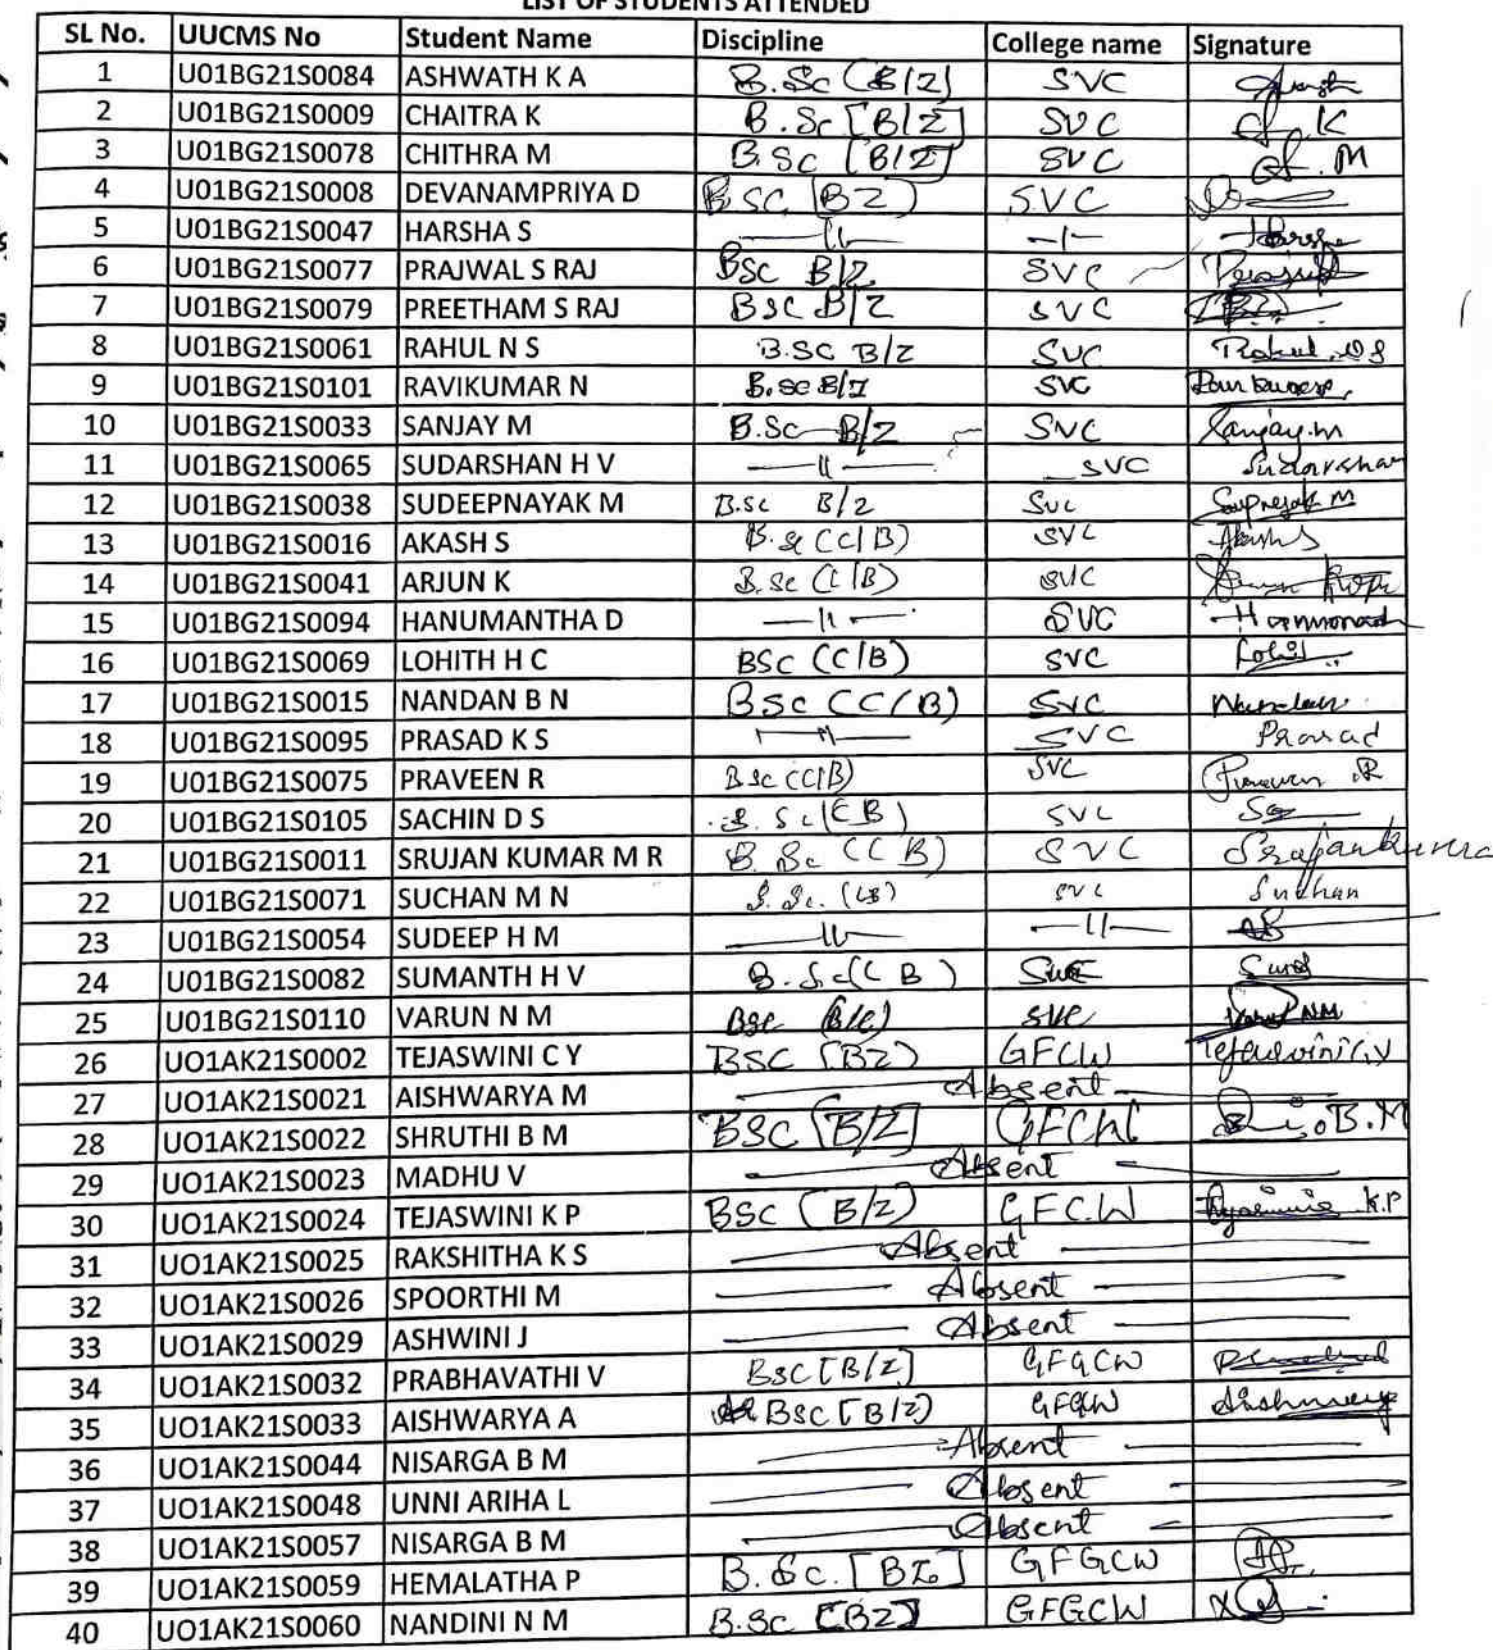 LIST OF STUDENTS ATTENDED
SL No. UUCMS No Student Name Discipline College name Signature
1 U01BG21S0084 ASHWATH K A B.Sc (B/Z) SVC
2 U01BG21S0009 CHAITRA K B.Sc [B/Z] SVC K
3 U01BG21S0078 CHITHRA M B.Sc [B/Z] SVC M
4 U01BG21S0008 DEVANAMPRIYA D BSC (BZ) SVC
5 U01BG21S0047 HARSHA S —11— —1— Harsha
6 U01BG21S0077 PRAJWAL S RAJ BSc B/Z SVC
7 U01BG21S0079 PREETHAM S RAJ BSc B/Z SVC
8 U01BG21S0061 RAHUL N S B.SC B/Z SVC Rahul.NS
9 U01BG21S0101 RAVIKUMAR N B.sc B/Z SVC
10 U01BG21S0033 SANJAY M B.Sc B/Z SVC Sanjay.m
11 U01BG21S0065 SUDARSHAN H V —11— SVC Sudarshan
12 U01BG21S0038 SUDEEPNAYAK M B.sc B/Z Svc
13 U01BG21S0016 AKASH S B.sc (C/B) SVC Akash S
14 U01BG21S0041 ARJUN K B.sc (C/B) SVC
15 U01BG21S0094 HANUMANTHA D —11— SVC
16 U01BG21S0069 LOHITH H C BSc (C/B) SVC Lohit
17 U01BG21S0015 NANDAN B N BSc (C/B) SVC Nandan
18 U01BG21S0095 PRASAD K S —11— SVC Prasad
19 U01BG21S0075 PRAVEEN R BSc (C/B) SVC R
20 U01BG21S0105 SACHIN D S B.Sc (CB) SVC
21 U01BG21S0011 SRUJAN KUMAR M R B.Sc (CB) SVC Srujankuma
22 U01BG21S0071 SUCHAN M N B.Sc. (CB) SVC Suchan
23 U01BG21S0054 SUDEEP H M —11— —11—
24 U01BG21S0082 SUMANTH H V B.Sc (C B) SVC
25 U01BG21S0110 VARUN N M BSc (B/C) SVC Varun NM
26 UO1AK21S0002 TEJASWINI C Y BSC (BZ) GFCW Tejaswini C.Y
27 UO1AK21S0021 AISHWARYA M Absent
28 UO1AK21S0022 SHRUTHI B M BSC [B/Z] GFCW B.M
29 UO1AK21S0023 MADHU V Absent
30 UO1AK21S0024 TEJASWINI K P BSC (B/Z) GFC.W K.P
31 UO1AK21S0025 RAKSHITHA K S Absent
32 UO1AK21S0026 SPOORTHI M Absent
33 UO1AK21S0029 ASHWINI J Absent
34 UO1AK21S0032 PRABHAVATHI V BSC [B/Z] GFGCW
35 UO1AK21S0033 AISHWARYA A BSC [B/Z) GFGW Aishwarya
36 UO1AK21S0044 NISARGA B M Absent
37 UO1AK21S0048 UNNI ARIHA L Absent
38 UO1AK21S0057 NISARGA B M Absent
39 UO1AK21S0059 HEMALATHA P B.Sc. [BZ] GFGCW
40 UO1AK21S0060 NANDINI N M B.Sc [BZ] GFGCW